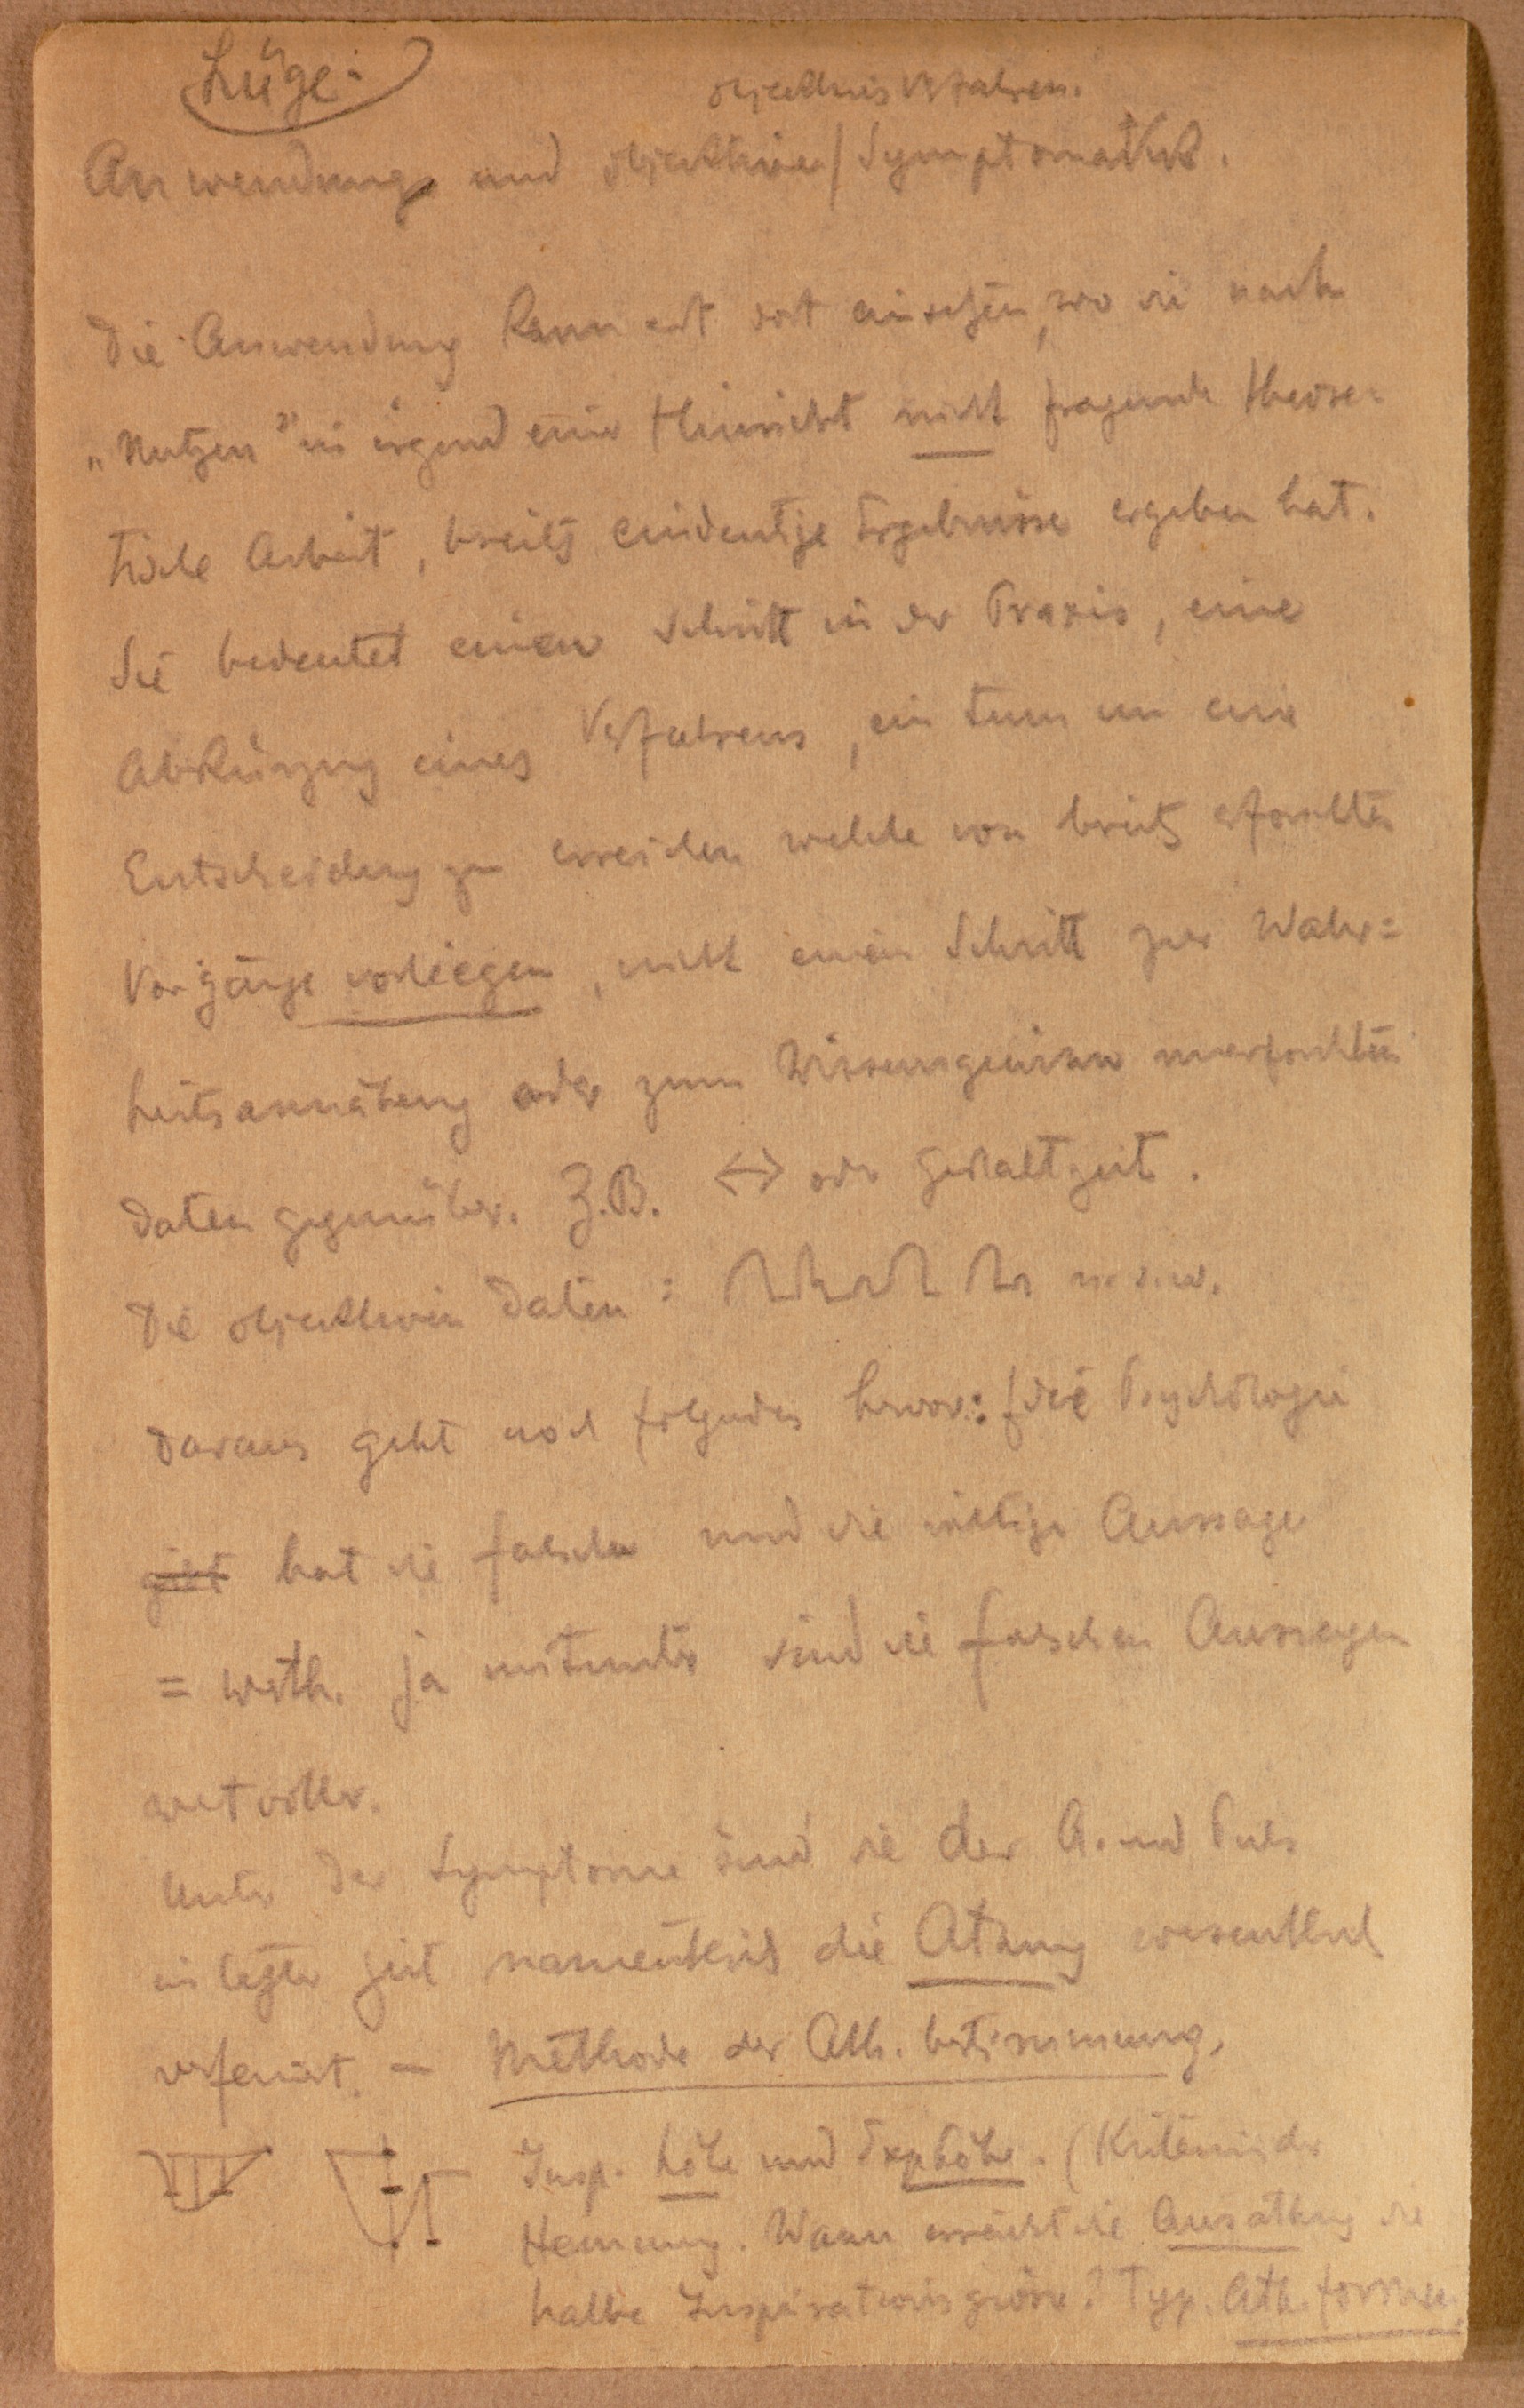 Lüge:
objektives Verfahren.
Anwendung und objektiven Symptomatik.
Die Anwendung kann erst dort einsetzen, wo die nach
„Nutzen" in irgend einer Hinsicht nicht fragende theore-
tische Arbeit, bereits eindeutige Ergebnisse ergeben hat.
Sie bedeutet einen Schritt in der Praxis, eine
Abkürzung eines Verfahrens, ein tun um eine
Entscheidung zu erreichen welche von bereits erforschten
Vorgänge vorliegen, nicht einen Schritt zur Wahr=
heitsannäherung oder zum Wissensgewinn unerforschten
Daten gegenüber. Z.B. <-> oder Gestaltzeit.
Die objektiven Daten: u.s.w.
Daraus geht noch folgendes hervor: für die Psychologie
gilt hat die falsche und die richtige Aussage
= werth. Ja mitunter sind die falschen Aussagen
wertvoller.
Unter der Symptome sind die der A. und Puls
in letzter Zeit namentlich die Atmung wesentlich
verfeinert. – Methode der Ath. bestimmung,
Insp. höhe und Exphöhe. (Kriterium der
Hemmung. Wann erreicht die Ausathmg die
halbe Inspirationsgrösse? Typ. Ath. formen